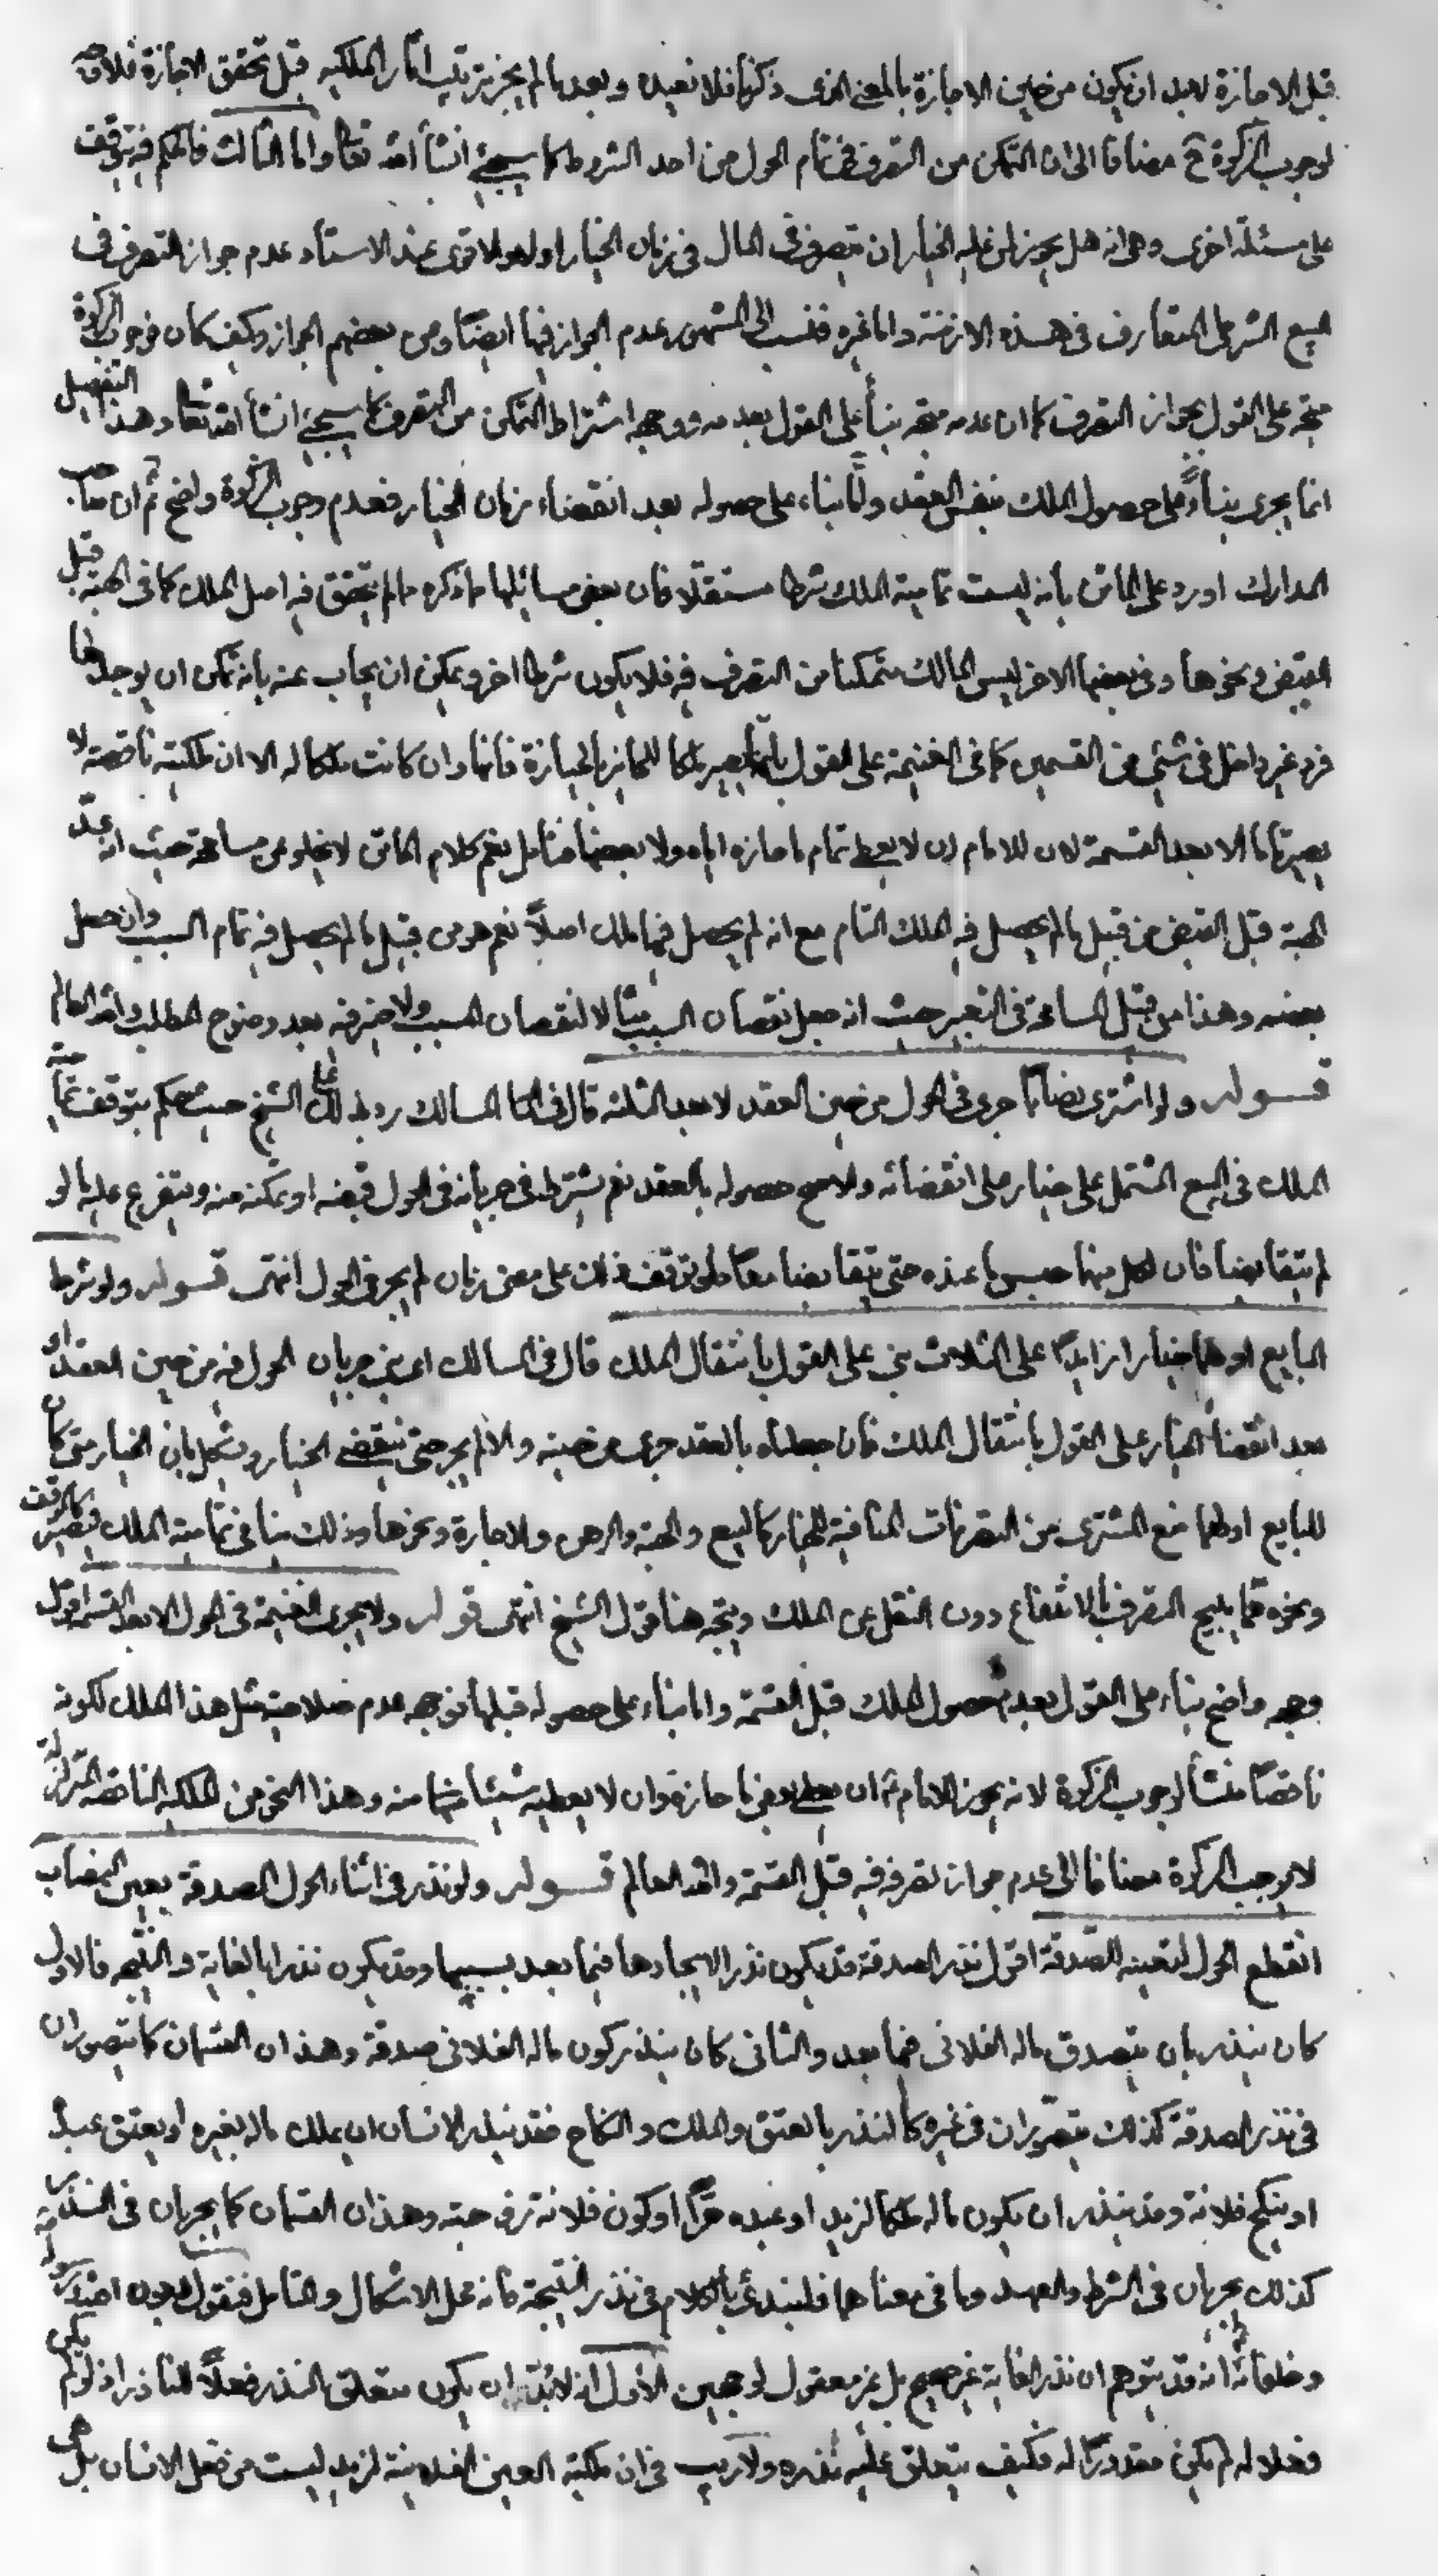 قبل الاجازة لابد ان يكون من حين الاجازة بالمعنى الذى ذكرنا فلا نعيده وبعدها لم يجز ترتيب اثار الملكيه قبل تحقق الاجازة فلا وجه
لوجوب الزكوة ح مضافا الى ان التمكن من التصرف فى تمام الحول من احد الشروط كما سيجئ انشأ الله تعا واما الثالث فالحكم فيه يتوقف
على مسئلة اخرى وهى انه هل يجوز لمن عليه الخيار ان يتصرف فى المال فى زمان الخيار اولا والاقوى عند الاستاد عدم جواز التصرف فى
البيع الشرطى المتعارف فى هذه الازمنة واما غيره فنسب الى المشهور عدم الجواز فيها ايضا وعن بعضهم الجواز وكيف كان فوجوب الزكوة
متجه على القول بجواز التصرف كما ان عدمه متجه بنأ على القول بعدمه ووجهه اشتراط التمكن من التصرف كما سيجئ انشأ الله تعا وهذا التفصيل
انما يجرى بناءً على حصول الملك بنفس العقد وامّا بناء على حصوله بعد انقضاء زمان الخيار فعدم وجوب الزكوة واضح ثم ان صاحب
المدارك اورد على الماتن بأنه ليست تمامية الملك شرطا مستقلا فان بعض مسائلها ما ذكره مالم يتحقق فيه اصل الملك كما فى الهبة قبل
القبض ونحوها وفى بعضها الاخر ليس المالك متمكنا من التصرف فيه فلا يكون شرطا اخر ويمكن ان يجاب عنه بانه يمكن ان يوجد لها
فرد غير داخل فى شئ من القسمين كما فى الغنيمة على القول بأنها يصير ملكا للحائز بالحيازة فأنها وان كانت ملكا له الا ان ملكيته ناقصة لا
يصير تاما الا بعد القسمة لان للامام ان لا يعطى تمام ما حازه اياه ولا بعضها فتأمل نعم كلام الماتن لا يخلو عن مسامحة حيث انه عدّ
الهبة قبل القبض من قبيل مالم يحصل فيه الملك التام مع انه لم يحصل فيها ملك اصلاً نعم هو من قبيل مالم يحصل فيه تمام السبب وان حصل
بعضه وهذا من قبيل المسامحة فى التعبير حيث انه جعل نقصان السبب لا لنقصان المسبب ولا ضير فيه بعد وضوح المطلب والله العالم
قوله ولو اشترى نصابا جرى فى الحول من حين العقد لا بعد الثلثه قال فى المسالك رد بذلك على الشيخ حيث حكم بتوقف تمامية
الملك فى البيع المشتمل على خيار على انقضائه والاصح حصوله بالعقد نعم يشترط فى جريانه فى الحول قبضه او تمكنه منه ويتفرع عليه ما لو
لم يتقابضا فان لكل منهما حبس ما عنده حتى يتقابضا معا فلو توقف ذلك على مضى زمان لم يجر فى الحول انتهى قوله ولو شرط
البايع او هما خيارا زايدًا على الثلاث بنى على القول بانتقال الملك قال فى المسالك اى بنى جريان الحول فيه من حين العقد او
بعد انقضأ الخيار على القول بأنتقال الملك فان جعلناه بالعقد جرى من حينه والا لم يجر حتى ينقضى الخيار ويشكل بان الخيار متى كان
للبايع او لهما منع المشترى من التصرفات المنافية للخيار كالبيع والهبة والرهن والاجارة ونحوها وذلك ينافى تمامية الملك فيصير كالوقف
ونحوه مما يبيح التصرف بالانتفاع دون النقل عن الملك ويتجه هنا قول الشيخ انتهى قوله ولا يجرى الغنيمة فى الحول الا بعد القسمة اقول
وجهه واضح بناء على القول بعدم حصول الملك قبل القسمة واما بناء على حصوله قبلها فوجهه عدم صلاحية مثل هذا الملك لكونه
ناقصا منشأ لوجوب الزكوة لانه يجوز للامام ان يعطى بعض ما حازه وان لا يعطيه شيئا منه وهذا النحو من الملكية الناقصة المتزلزلة
لا يوجب الزكوة مضافا الى عدم جواز تصرفه فيه قبل القسمة والله العالم قوله ولو نذر فى اثناء الحول الصدقة بعين النصاب
انقطع الحول لتعينه للصدقة اقول نذر الصدقة قد يكون نذرا لايجادها فيما بعد بسببها وقد يكون نذرا بالغاية والنتيجه فالاول
كان ينذر بان يتصدق ماله الفلانى فيما بعد والثانى كان ينذر كون ماله الفلانى صدقة وهذان القسمان كما يتصوران
فى نذر الصدقة كذلك يتصوران فى غيره كالنذر بالعتق والملك والنكاح فقد ينذر الانسان ان يملك ماله بغيره او يعتق عبدا
او ينكح فلانة وقد ينذر ان يكون ماله ملكا لزيد او عبده حرًا او كون فلانة زوجته وهذان القسمان كما يجريان فى النذر
كذلك يجريان فى الشرط والعهد وما فى معناهما فلنبتدئ بالكلام فى نذر النتيجة فانه محل الاشكال والتأمل فنقول بعون الله
وخلفائه انه قد يتوهم ان نذر الغاية غير صحيح بل غير معقول لوجهين الاول انه لابد ان يكون متعلق النذر فعلاً للناذر اذ لو لم يكن
فعلا له لم يكن مقدورًا له فكيف يتعلق عليه نذره ولا ريب فى ان ملكية العين لزيد ليست من فعل الانسان بل هى